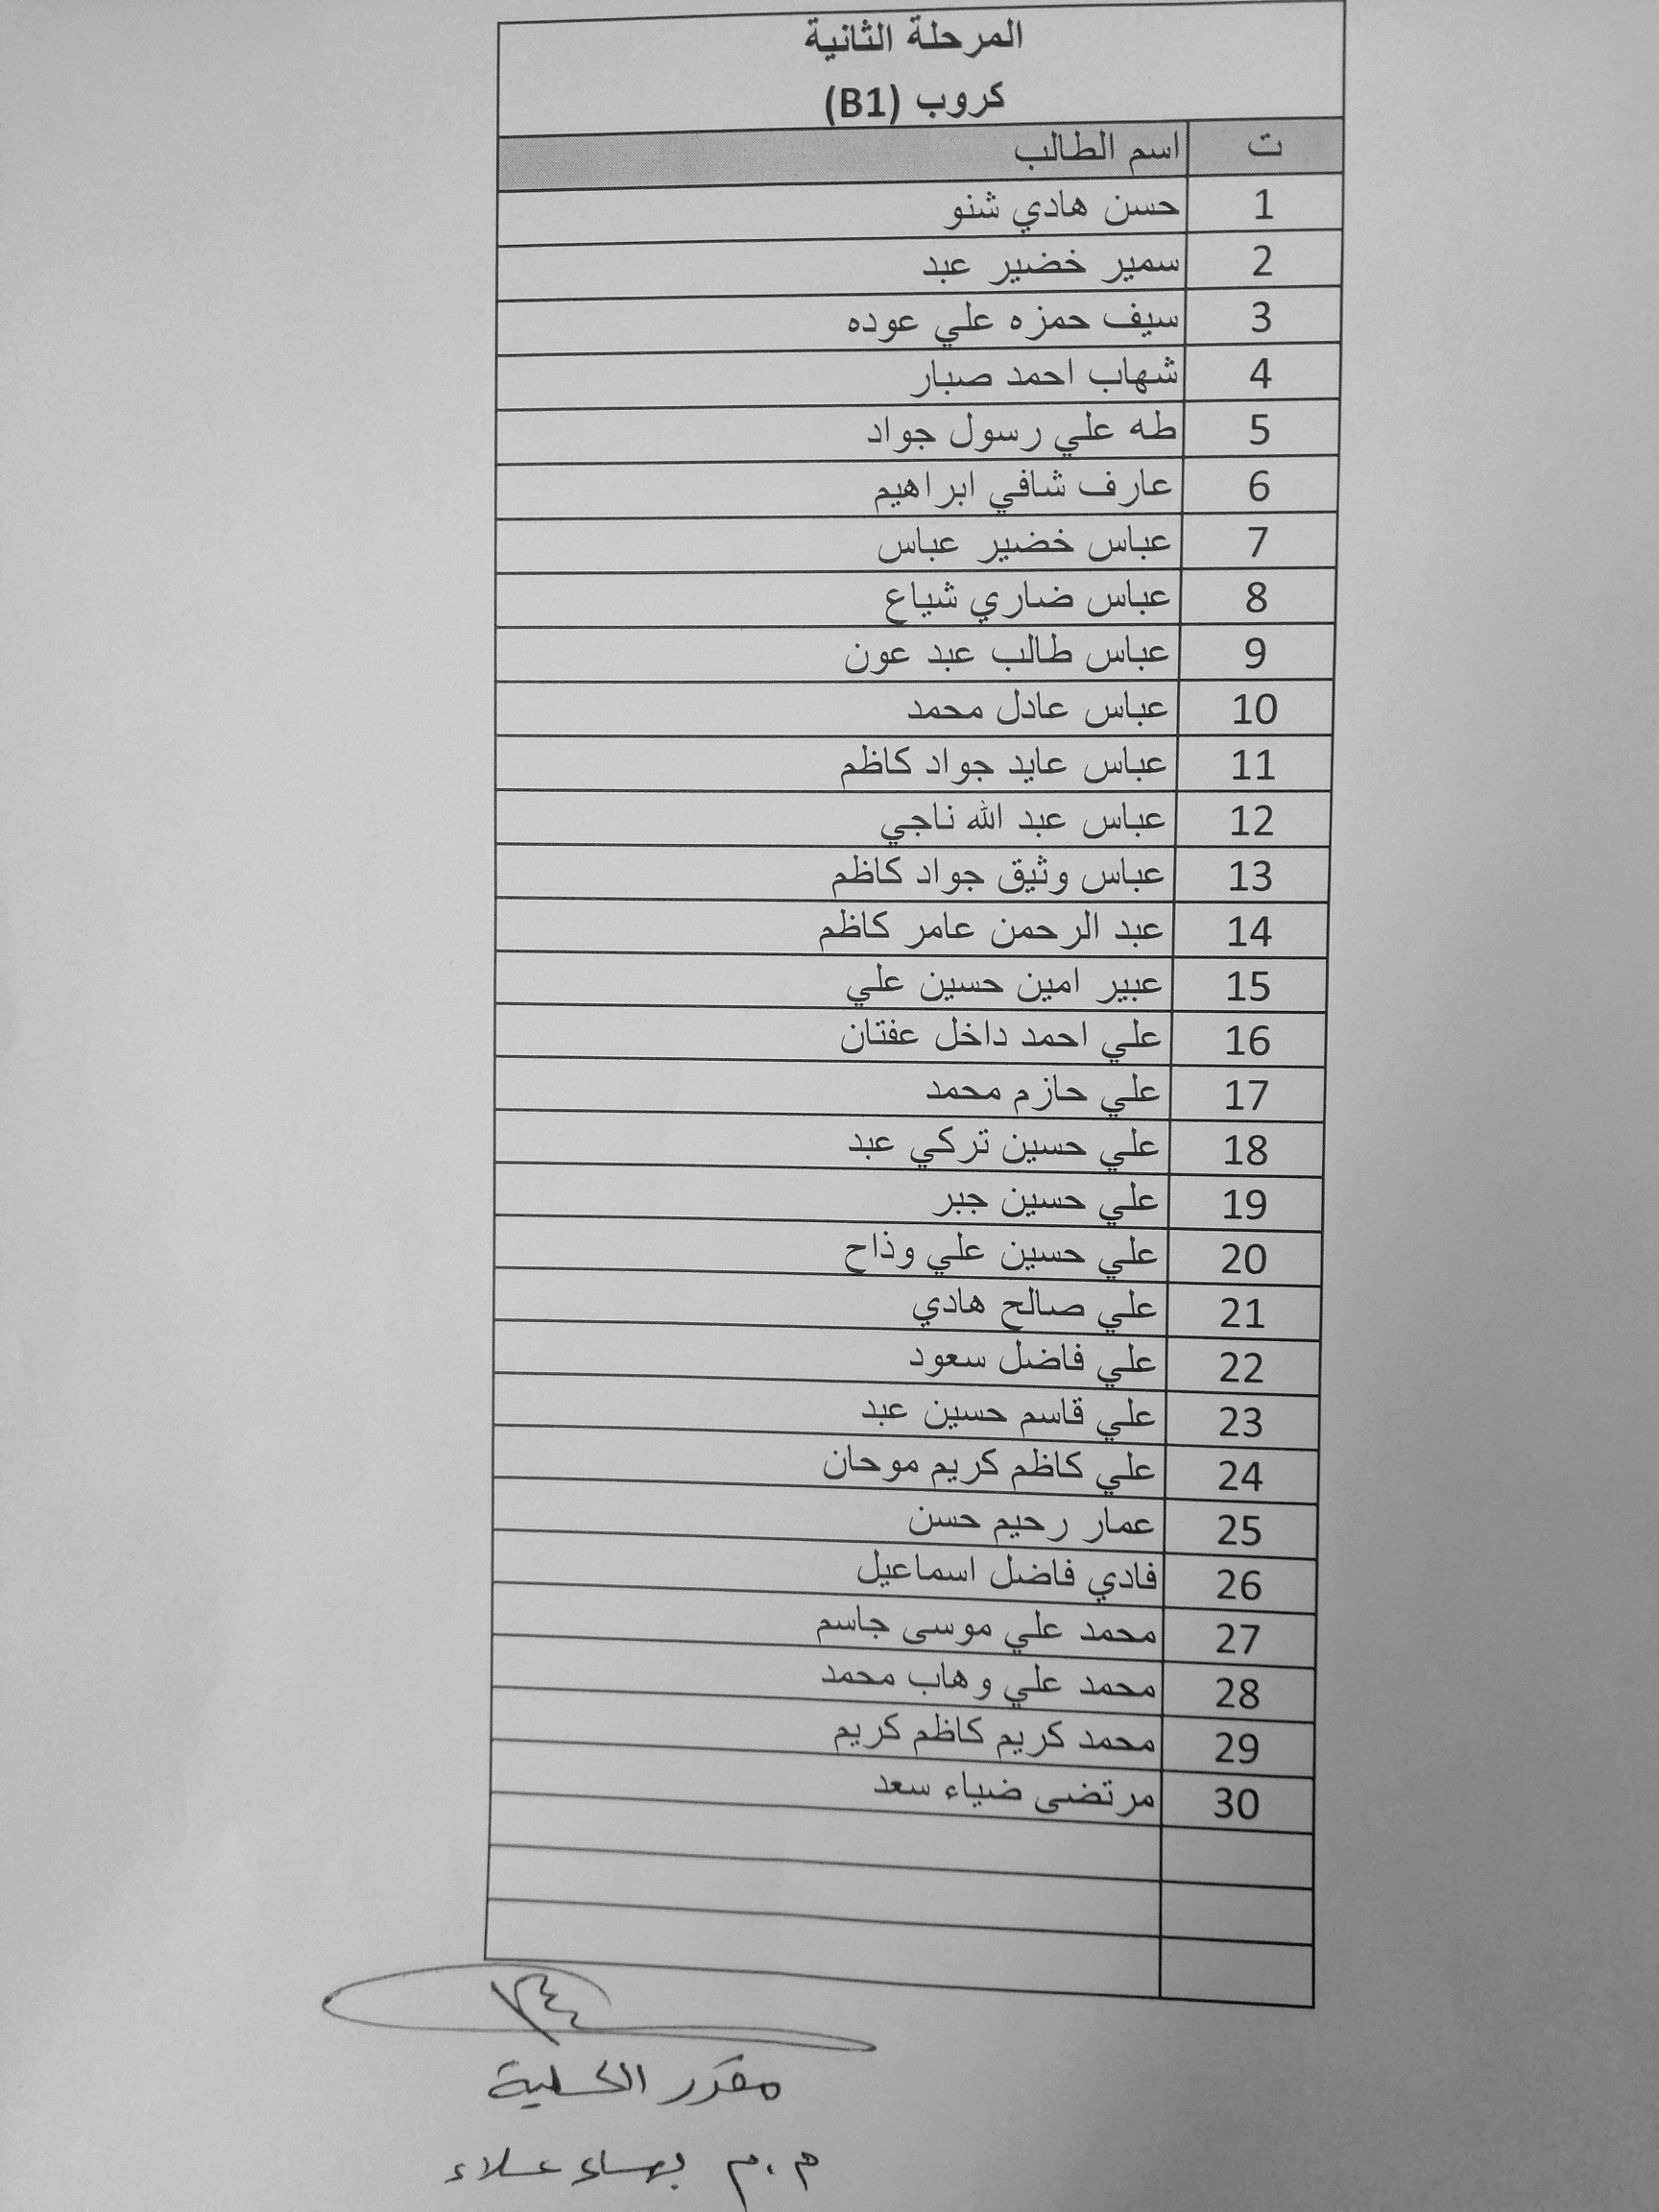 المرحلة الثانية
كروب (B1)
ت اسم الطالب
1 حسن هادي شنو
2 سمير خضير عبد
3 سيف حمزه علي عوده
4 شهاب احمد صبار
5 طه علي رسول جواد
6 عارف شافي ابراهيم
7 عباس خضير عباس
8 عباس ضاري شياع
9 عباس طالب عبد عون
10 عباس عادل محمد
11 عباس عايد جواد كاظم
12 عباس عبد الله ناجي
13 عباس وثيق جواد كاظم
14 عبد الرحمن عامر كاظم
15 عبير امين حسين علي
16 علي احمد داخل عفتان
17 علي حازم محمد
18 علي حسين تركي عبد
19 علي حسين جبر
20 علي حسين علي وذاح
21 علي صالح هادي
22 علي فاضل سعود
23 علي قاسم حسين عبد
24 علي كاظم كريم موحان
25 عمار رحيم حسن
26 فادي فاضل اسماعيل
27 محمد علي موسى جاسم
28 محمد علي وهاب محمد
29 محمد كريم كاظم كريم
30 مرتضى ضياء سعد
مقرر الكلية
م.م بهاء علاء